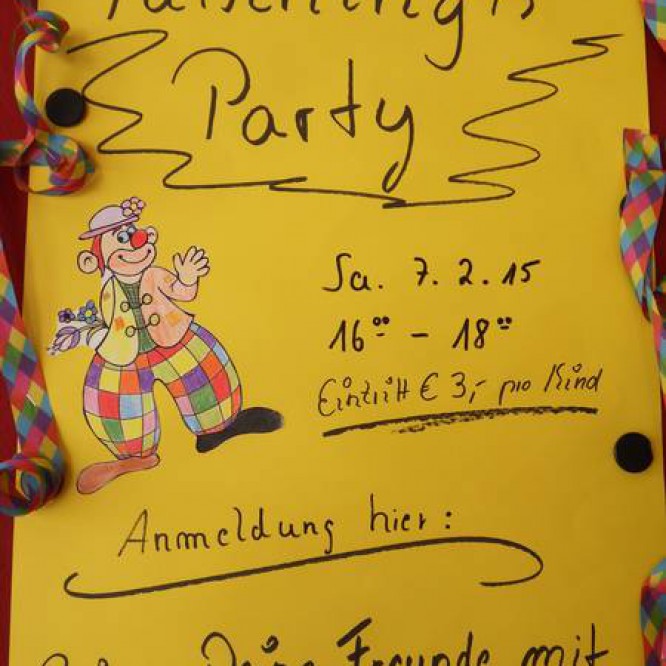 Faschings
Party
Sa. 7.2.15
16⁰⁰ - 18⁰⁰
Eintritt € 3,- pro Kind
Anmeldung hier:
Deine Freunde mit